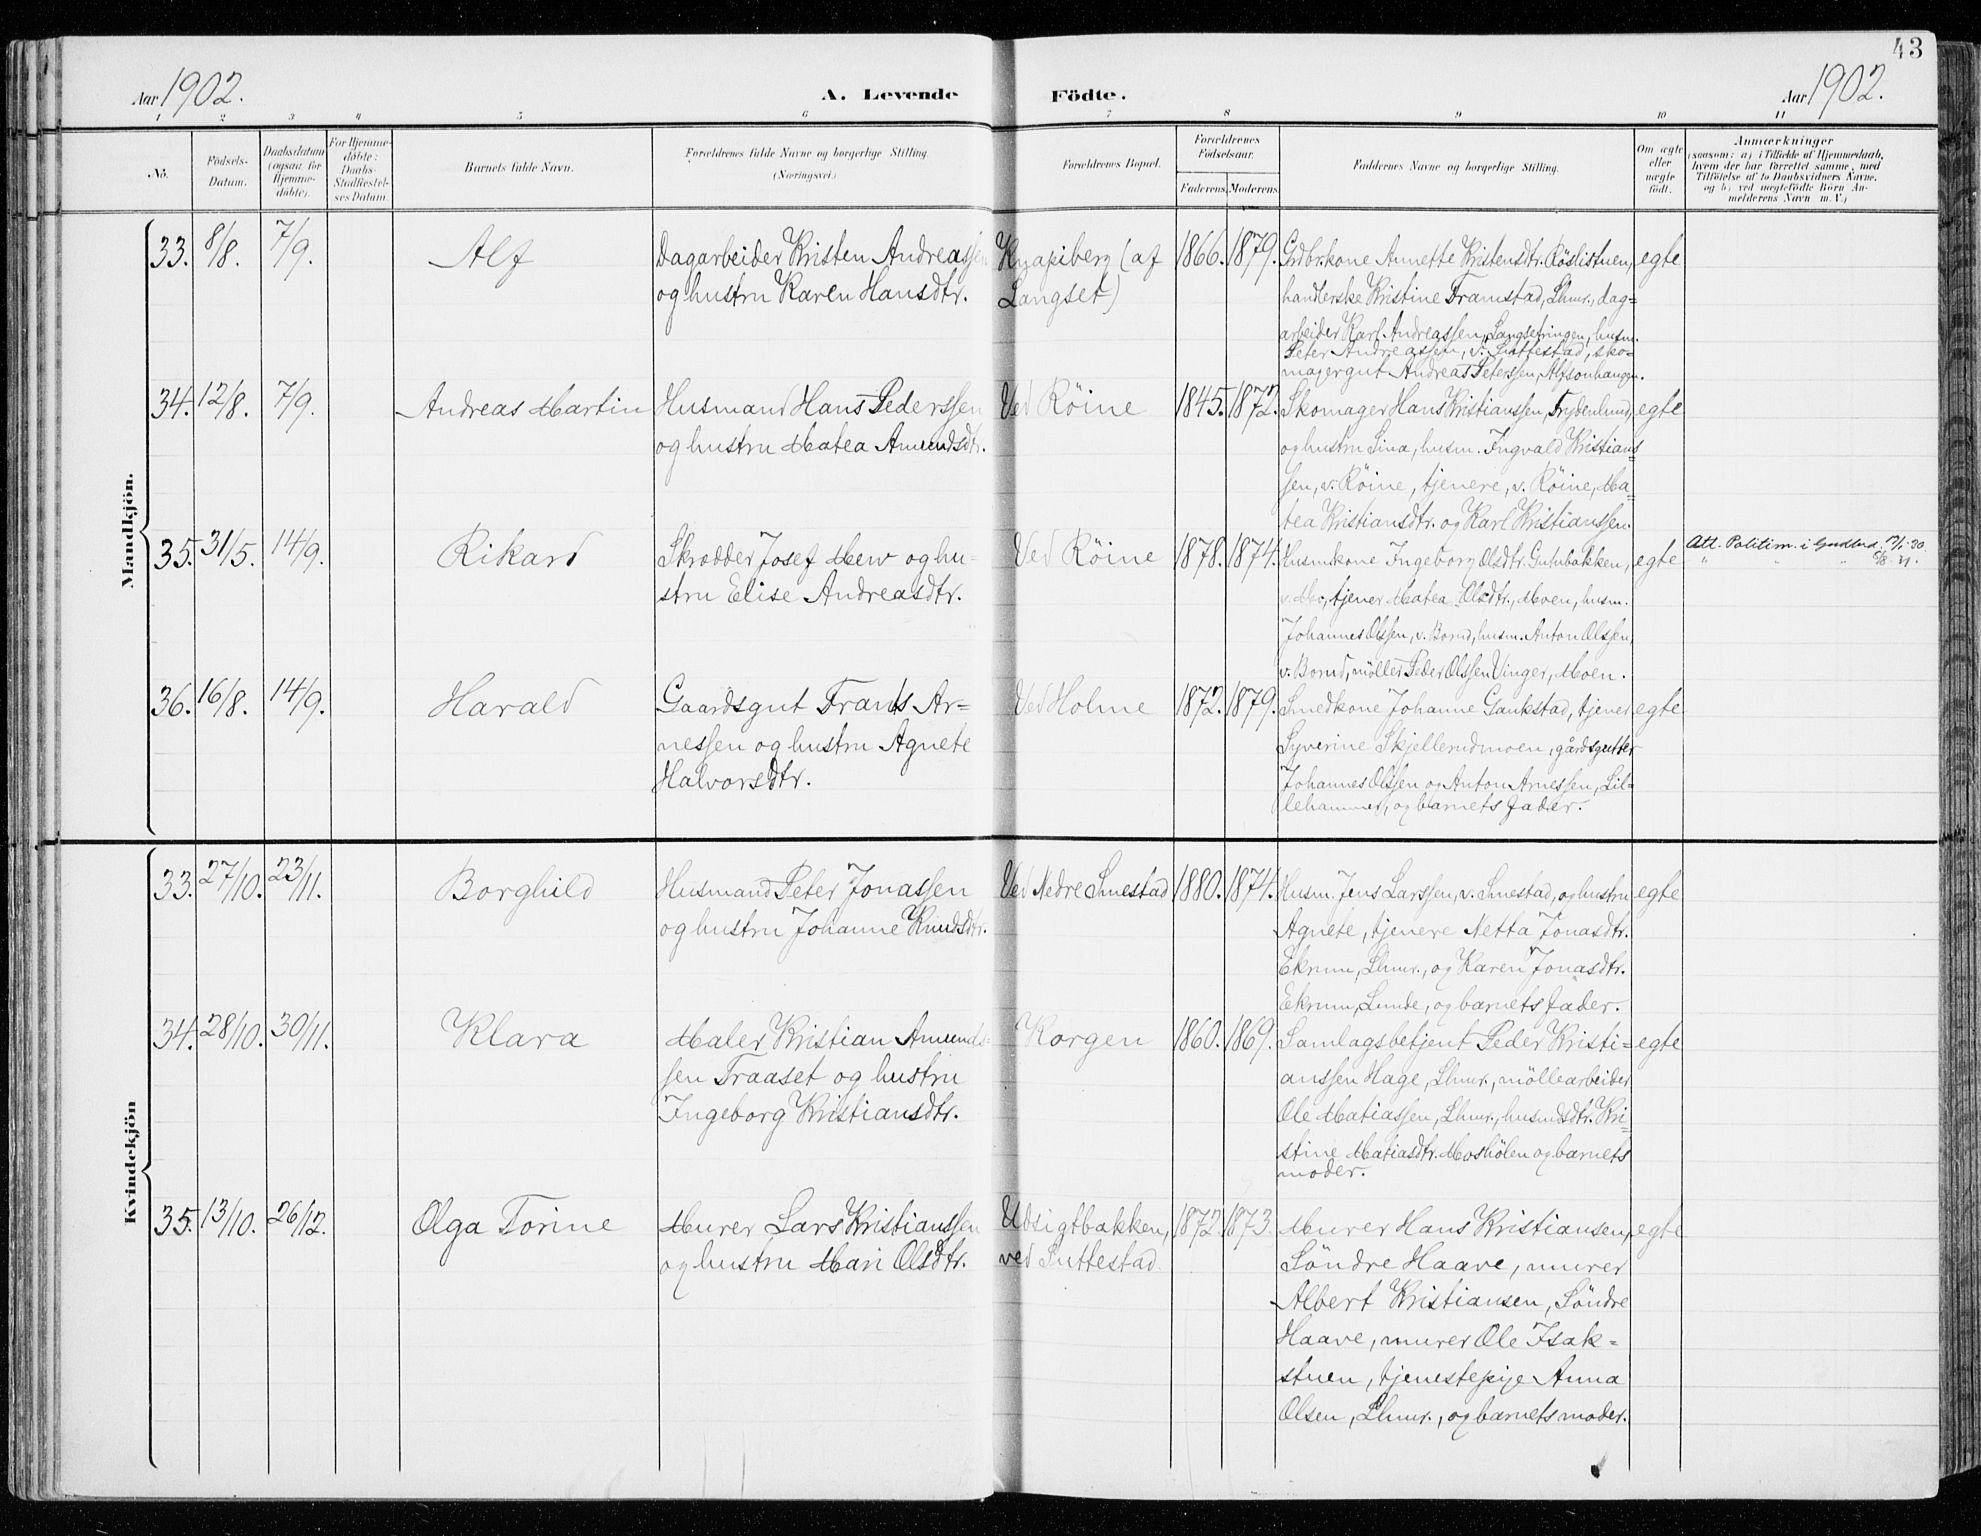 43
Aar 1902.
A. Levende Födte.
Aar 1902.
1 2 3 4 5 6 7 8 9 10 11
No. Födsels-Datum. Daabsdatum (ogsaa for Hjemmedöbte). For Hjemmedöbte: Daabs-Stadfæstelses Datum. Barnets fulde Navn. Forældrenes fulde Navne og borgerlige Stilling. (Næringsvei.) Forældrenes Bopæl. Forældrenes Födselsaar. Faderens. Moderens. Faddernes Navne og borgerlige Stilling. Om ægte eller uægte födt. Anmærkninger
(saasom: a) i Tilfælde af Hjemmedaab,
hvem der har forrettet samme, med
Tilföielse af to Daabsvidners Navne.
og b) ved uægtefödte Börn An-
melderens Navn m. V.)
Mandkjön.
33. 8/8. 7/9. Alf
Dagarbeider Kristen Andreassen
og hustru Karen Hansdtr.
Knapiberg (af
Langset)
1866. 1879.
Grdbr.kone Annette Kristensdtr. Röslistuen,
handlerske Kristine Framstad, Lhmr., dag=
arbeider Karl Andreassen, Langsetringen, husm.
Peter Andreassen, v. Suttestad, sko=
magergut Andreas Peterssen, Alfsonhaugen.
egte
34. 12/8. 7/9. Andreas Martin
Husmand Hans Pederssen
og hustru Matea Amundsdtr.
Ved Röine
1845. 1872.
Skomager Hans Kristianssen, Frydenlund,
og hustru Lina, husm. Ingvald Kristians=
sen, v. Röine, tjenere, v. Röine, Ma=
tea Kristiansdtr. og Karl Kristianssen.
egte
35. 31/5. 14/9. Rikard
Skrædder Josef Mew og hu=
stru Elise Andreasdtr.
Ved Röine
1878. 1874.
Husm.kone Ingeborg Olsdtr. Gutubakken,
v. Mo, tjener Matea Olsdtr., Moen, husm.
Johannes Olssen, v. Borud, husm. Anton Olssen,
v. Borud, möller Peder Olssen Vinger, Moen.
egte
Att. Politim. i Gudbrd.
36. 16/8. 14/9. Harald
Gaardsgut Frans Ar=
nessen og hustru Agnete
Halvorsdtr.
Ved Holme
1872. 1879.
Smedkone Johanne Gaukstad, tjener
Syverine Skjellerudmoen, gårdsgutter
Johannes Olssen og Anton Arnessen, Lil=
lehammer, og barnets fader.
egte
Kvindekjön
33. 27/10. 23/11. Borghild
Husmand Peter Jonassen
og hustru Johanne Knudsdtr.
Ved Nedre Smestad
1880. 1874.
Husm. Jens Larssen, v. Smestad, og hustru
Agnete, tjenere Netta Jonasdtr.
Ekrum, Lhmr., og Karen Jonasdtr.
Ekrum, Lunde, og barnets fader.
egte
34. 28/10. 30/11. Klara
Maler Kristian Amunds=
sen Traaset og hustru
Ingeborg Kristiansdtr.
Korgen
1860. 1869.
Samlagsbetjent Peder Kristi=
anssen Hage, Lhmr., möllearbeider
Ole Matiassen, Lhmr., husmdsdtr. Kri=
stine Matiasdtr. Moshölen og barnets
moder.
egte
35. 13/10. 26/12. Olga Torine
Murer Lars Kristianssen
og hustru Mari Olsdtr.
Udsigtbakken,
ved Suttestad.
1872. 1873.
Murer Hans Kristiansen,
Söndre Haave, murer
Albert Kristiansen, Söndre
Haave, murer Ole Isak=
stuen, tjenestepige Anna
Olsen, Lhmr., og barnets moder.
egte